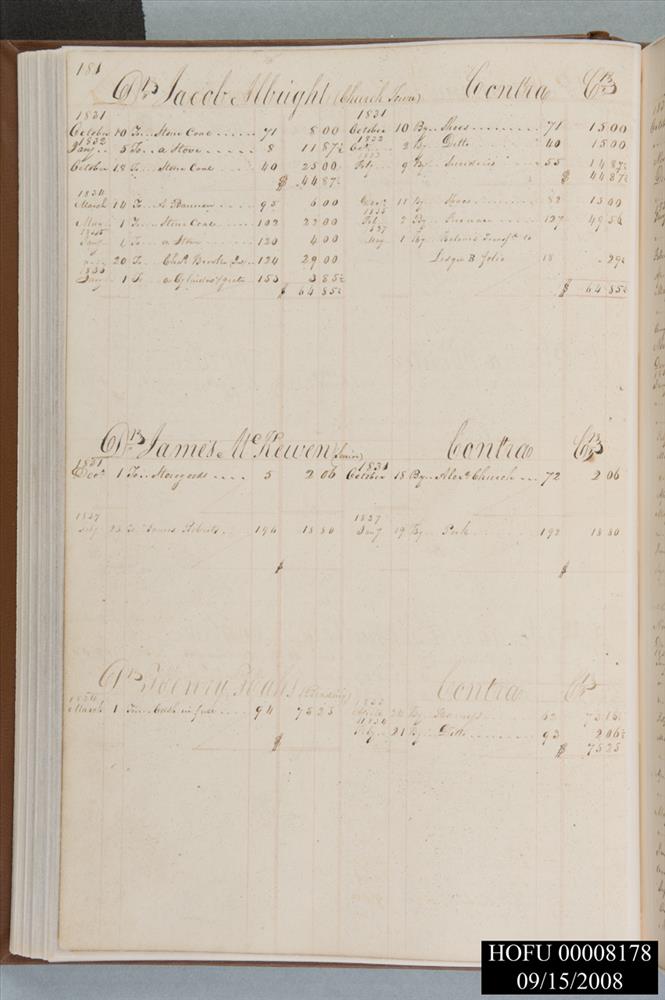 181
Dr. Jacob Albright (Church Town) Contra Cr.
1831 1831
October 10 To Stone Coal 71 8 00 October 10 By Shoes 71 15 00
1832 1832
Jany 5 To a Stove 8 11 87½ Oct 2 By Ditto 40 15 00
October 18 To Stone Coal 40 25 00 9 By Sundries 55 14 87½
$ 44 87½ $ 44 87½
1834
March 14 To 95 6 00 11 By Shoes 82 15 00
May 1 To Stone Coal 102 22 00 2 By 127 49 56
1835 1837
Jany 1 To a Stove 120 4 00 1 By Balance Transfd to
20 To Chas Brooke 124 29 00 Ledger B folio 18 29½
Jany 1 To a Cylinder & grate 153 3 85½
$ 64 85½ $ 64 85½
Dr. James McKewen (Junior) Contra Cr.
1831 1831
Decr 1 To Store goods 5 2 06 October 18 By Alexr Church 72 2 06
1837 1837
23 To James Roberts 194 18 80 Jany 19 By Pork 192 18 80
$ $
Dr. Henry Hahs (Reading) Contra Cr.
1834 1833
March 1 To Cash in full 94 75 25 24 By 62 73 18½
1834
Feby 21 By Ditto 93 2 06½
$ $ 75 25
HOFU 00008178
09/15/2008